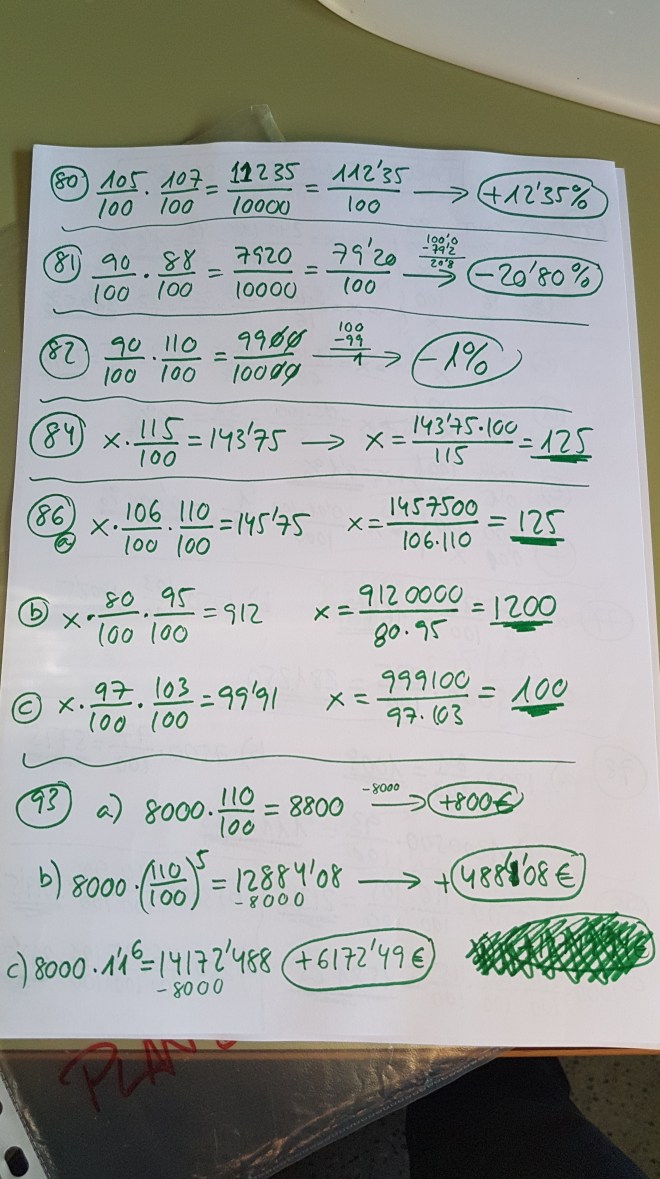 80 105/100 · 107/100 = 11235/10000 = 112'35/100 → +12'35%
81 90/100 · 88/100 = 7920/10000 = 79'20/100 100'0 -79'2 20'8 → -20'80%
82 90/100 · 110/100 = 9900/10000 100 -99 1 → -1%
84 x · 115/100 = 143'75 → x = 143'75·100/115 = 125
86 a x · 106/100 · 110/100 = 145'75 x = 1457500/106·110 = 125
b x · 80/100 · 95/100 = 912 x = 9120000/80·95 = 1200
c x · 97/100 · 103/100 = 99'91 x = 999100/97·103 = 100
93 a) 8000 · 110/100 = 8800 -8000 → +800€
b) 8000 · (110/100)^5 = 12884'08 → + 4884'08€
-8000
c) 8000 · 1'1^6 = 14172'488 +6172'49€
-8000